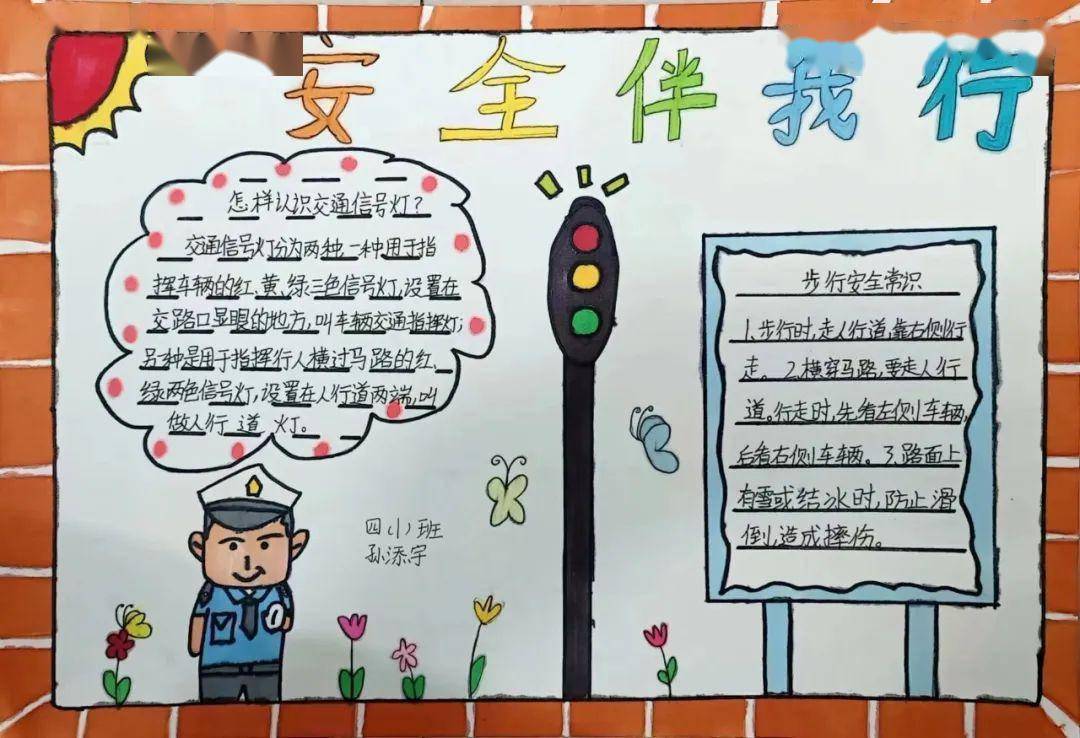 安全伴我行
怎样认识交通信号灯?
交通信号灯分为两种,一种用于指
挥车辆的红、黄、绿三色信号灯,设置在
交路口显眼的地方,叫车辆交通指挥灯;
另种是用于指挥行人横过马路的红、
绿两色信号灯,设置在人行道两端,叫
做人行道灯。
步行安全常识
1.步行时,走人行道,靠右侧行
走。2.横穿马路,要走人行
道。行走时,先看左侧车辆,
后看右侧车辆。3.路面上
有雪或结冰时,防止滑
倒,造成摔伤。
四(1)班
孙添宇